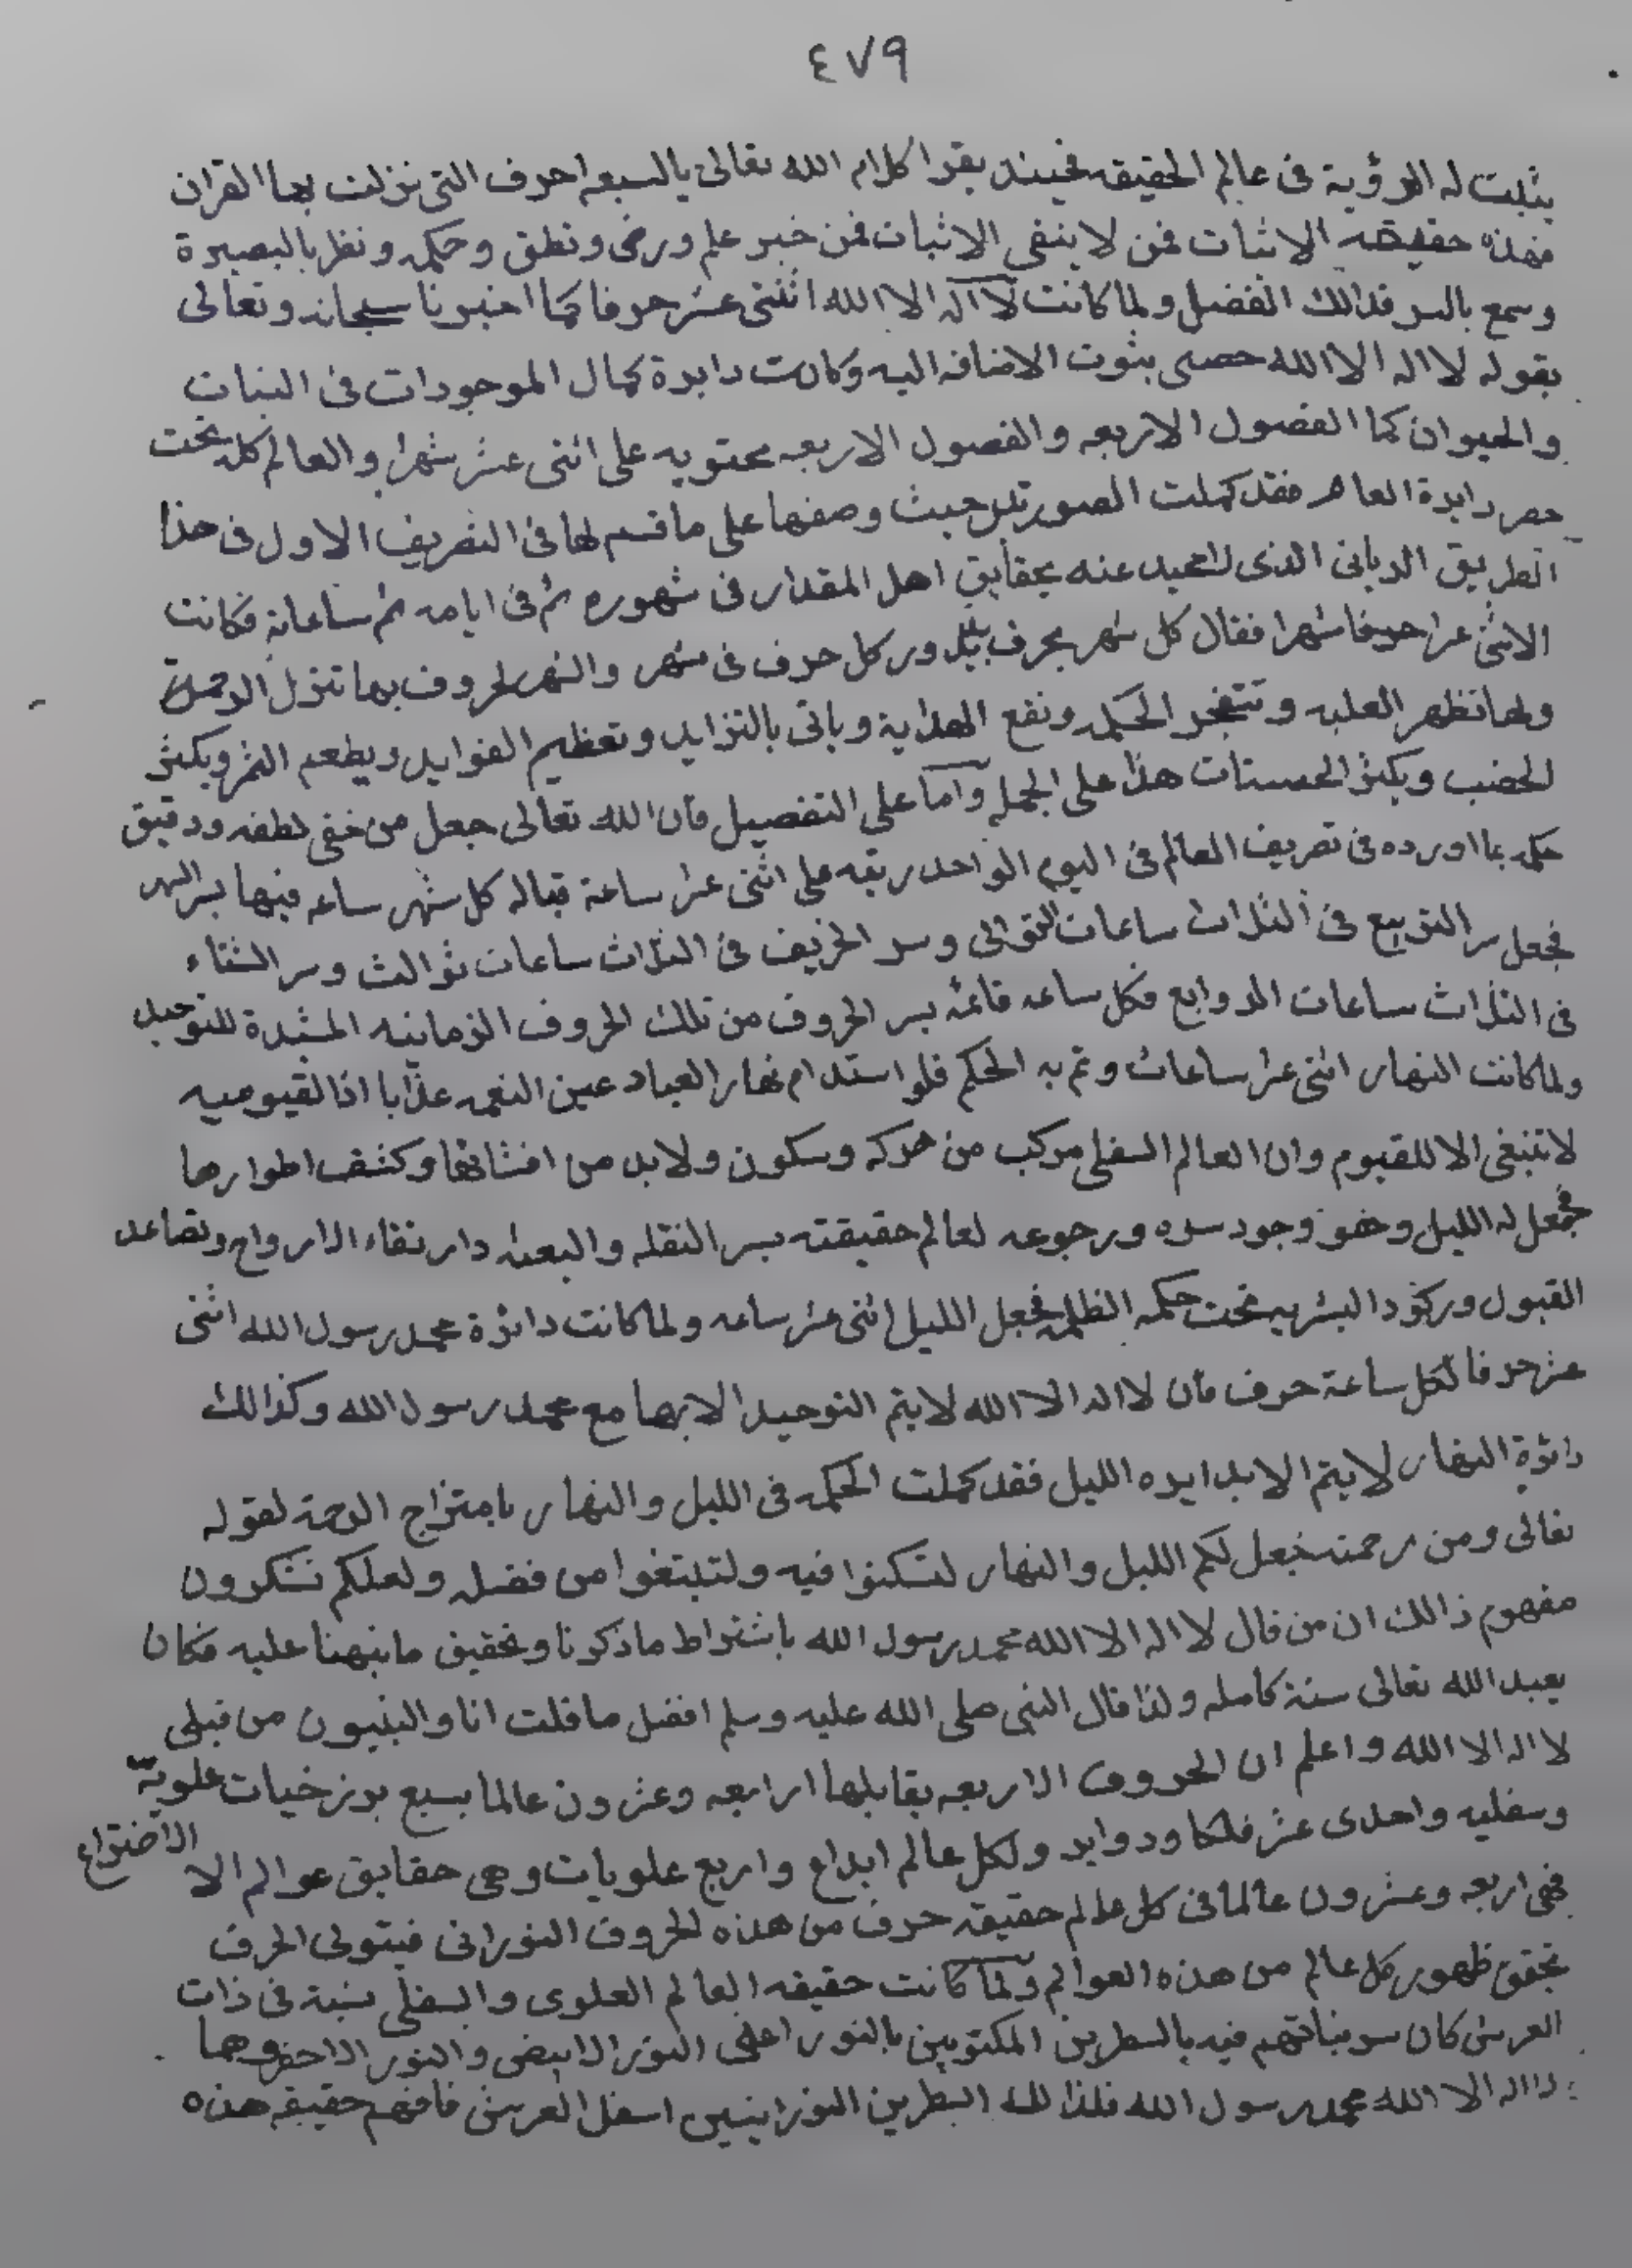 ٤٧٩
يثبت له الرؤية فى عالم الحقيقه فحينئد يقرا كلام الله تعالى بالسبعه احرف التى نزلت بها القران
فهذه حقيقه الاثبات فمن لا ينفى الاثبات فمن خبر علم ورضى ونطق وحكمه ونظر بالبصيرة
وسمع بالسر فذالك الفضل ولما كانت لا اله الا الله اثنتى عشر حرفا كما اخبرنا سبحانه وتعالى
بقوله لا اله الا الله حصى بثوت الاضافه اليه وكانت دايرة كمال الموجودات فى النبات
والحيوان كما الفصول الاربعه والفصول الاربعه محتويه على اثنى عشر شهرا والعالم كله تحت
حصر دايرة العام فقد كملت الصورتين حيث وصفها على ما قسم لها فى التصريف الاول فى هذا
الطريق الربانى الذى لا محيد عنه بحقايق اهل المقدار فى شهوره ثم فى ايامه ثم ساعاته فكانت
الاثنى عشر حرفا شهرا فقال كل شهر بحرف يدور كل حرف فى شهر والشهر لحروف بها تنزل الرحمة
ولها تظهر العلبه وتتفجر الحكمه وتقع الهداية وياتى بالتزايد وتعظيم الفوايد ويطعم الثمر ويكثر
الخضب ويكثر الحسنات هذا على الجمله واما على التفصيل فان الله تعالى جعل من خفى لطفه ودقيق
حكمه بما اورده فى تصريف العالم فى اليوم الواحد رتبه على اثنى عشر ساعة قباله كل شهر ساعه فيها سر الشهر
فجعل سر التربيع فى الثلاث ساعات التوالى وسر الخريف فى الثلاث ساعات ثوالث وسر الشتاء
فى الثلاث ساعات الروابع فكل ساعه قائمه بسر الحروف من تلك الحروف الزمانيه المشيدة للتوحيد
ولما كانت النهار اثنى عشر ساعات وتم به الحكم فلو استدام نهار العباد عين النعمه عذابا اذا القيوميه
لا تنبغى الا للقيوم وان العالم السفلى مركب من حركه وسكون ولا بد من افشائها وكشف اطوارها
فجعل له الليل وخفو وجود سره ورجوعه لعالم حقيقته بسر النقله والبعثه دار نقاء الارواح وتصاعد
القبول وركود البشريه تحت حكمه الظلمه فجعل الليل اثنى عشر ساعه ولما كانت دائرة محمد رسول الله اثنى
عشر حرفا لكل ساعة حرف فان لا اله الا الله لا يتم التوحيد الا بها مع محمد رسول الله وكذالك
دائرة النهار لا يتم الا بدايره الليل فقد كملت الحكمه فى الليل والنهار بامتزاج الرحمة لقوله
تعالى ومن رحمته جعل لكم الليل والنهار لتسكنوا فيه ولتبتغوا من فضله ولعلكم تشكرون
مفهوم ذالك ان من قال لا اله الا الله محمد رسول الله باشتراط ما ذكرنا وتحقيق ما نبهنا عليه فكان
يعبد الله تعالى سنة كامله ولذا قال النبى صلى الله عليه وسلم افضل ما قلت انا والنبيون من قبلى
لا اله الا الله واعلم ان الحروف الاربعه يقابلها اربعه وعشرون عالما بسبع برزخيات علويه
وسفليه واحدى عشر فلكا ودواير ولكل عالم ابداع واربع علويات وهى حقايق عوالم الا الاختراع
فهى اربعه وعشرون عالما فى كل عالم حقيقه حرف من هذه الحروف النورانى فيتولى الحرف
تحقق ظهور كل عالم من هذه العوالم ولما كانت حقيقه العالم العلوى والسفلى نسبة فى ذات
العرش كان سر نباتهم فيه بالسطرين المكتوبين بالنور اعلى النور الابيض والنور الاخضر وهما
لا اله الا الله محمد رسول الله فلذالك السطرين النورانيين اسفل العرش فافهم حقيقه هذه